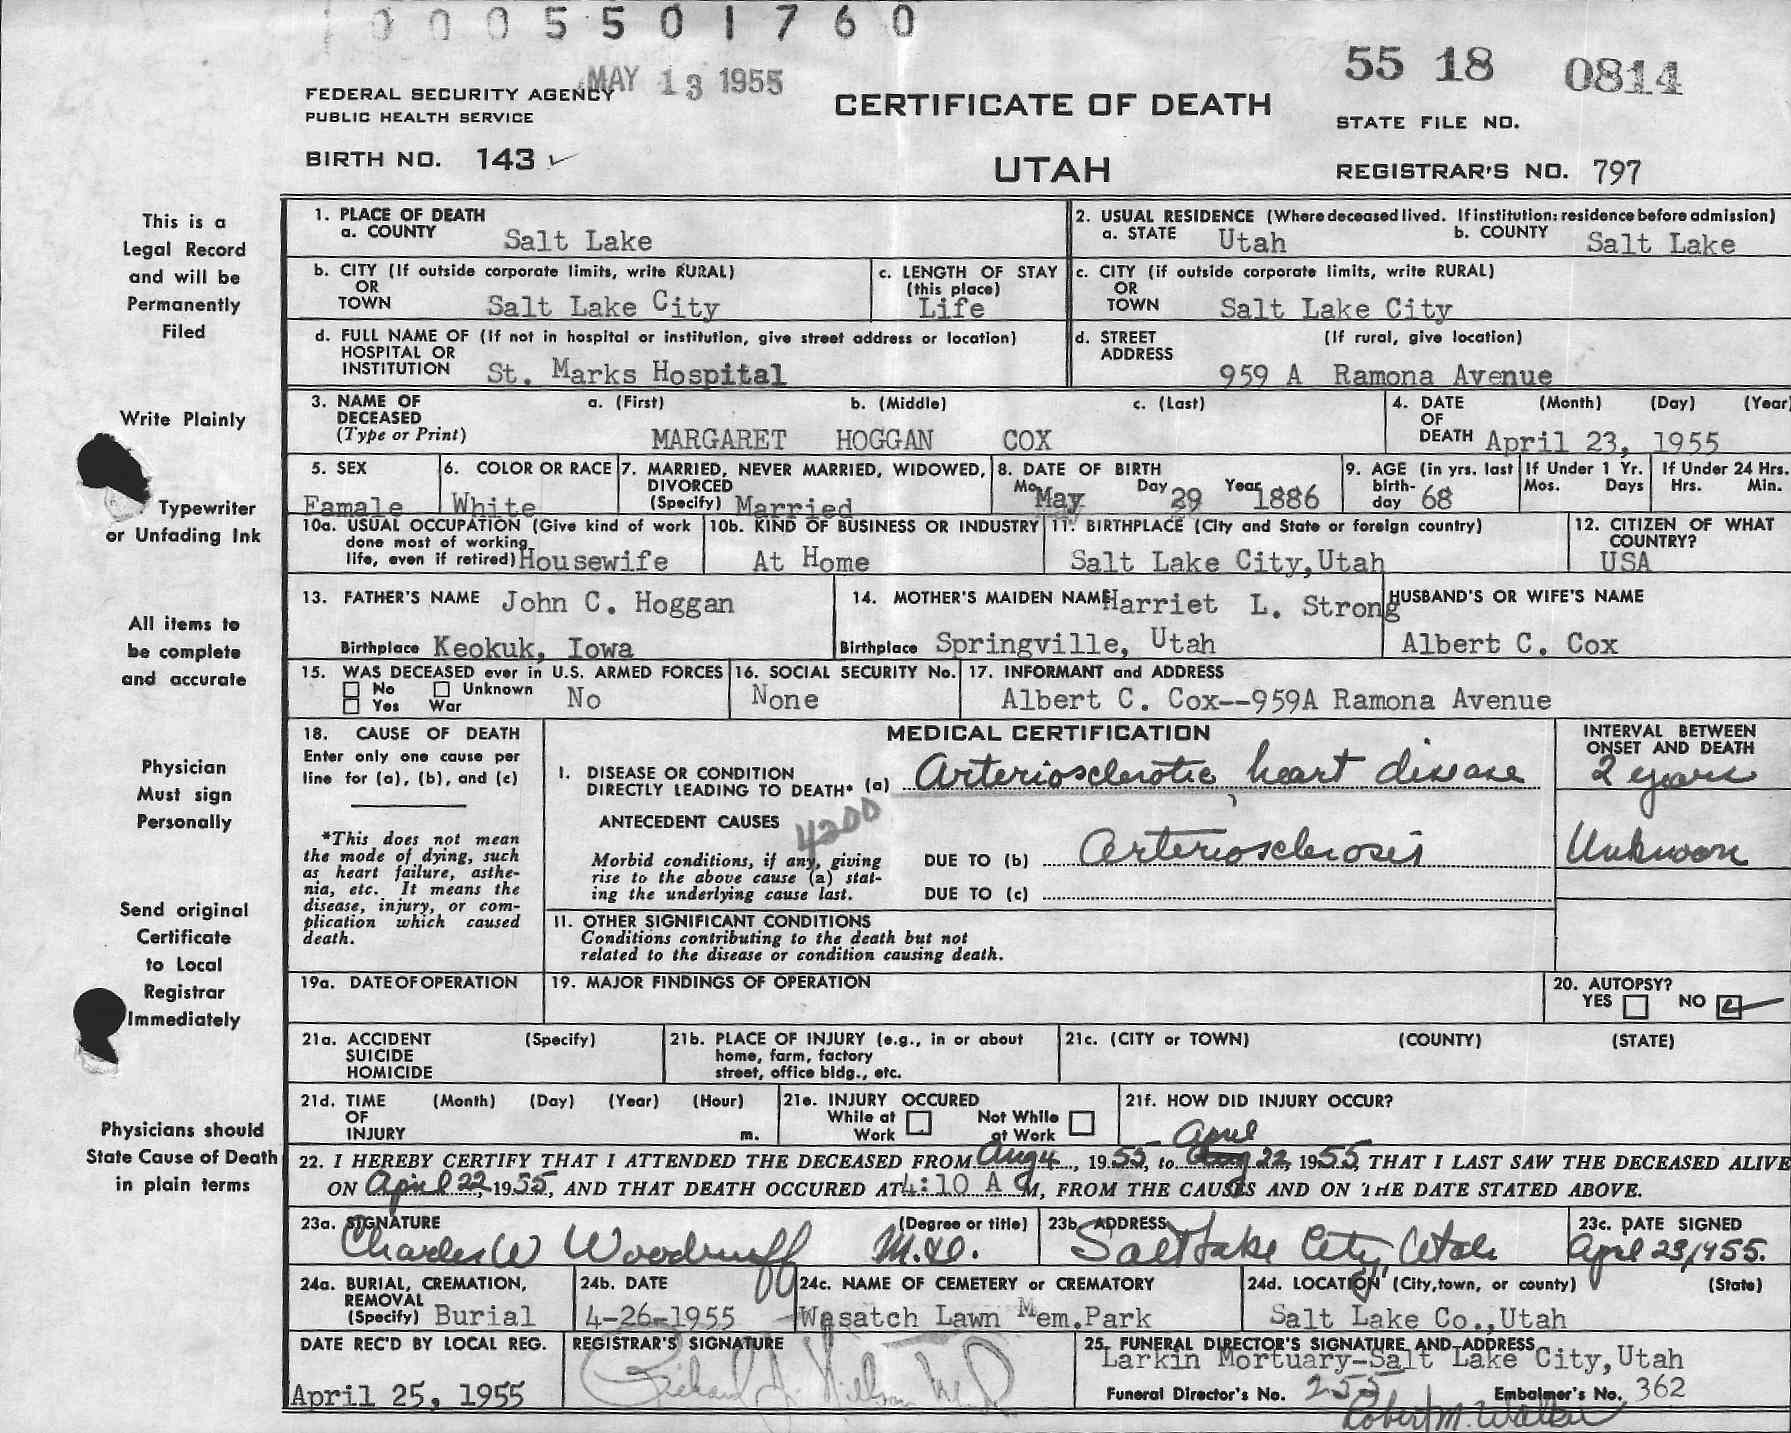 0 0 0 5 5 0 1 7 6 0
MAY 13 1955
55 18 0814
FEDERAL SECURITY AGENCY
PUBLIC HEALTH SERVICE
CERTIFICATE OF DEATH
STATE FILE NO.
BIRTH NO. 143 ✓
UTAH
REGISTRAR'S NO. 797
This is a
Legal Record
and will be
Permanently
Filed
Write Plainly
Typewriter
or Unfading Ink
All items to
be complete
and accurate
Physician
Must sign
Personally
Send original
Certificate
to Local
Registrar
Immediately
Physicians should
State Cause of Death
in plain terms
1. PLACE OF DEATH
a. COUNTY Salt Lake
2. USUAL RESIDENCE (Where deceased lived. If institution: residence before admission)
a. STATE Utah b. COUNTY Salt Lake
b. CITY (If outside corporate limits, write RURAL)
OR
TOWN Salt Lake City
c. LENGTH OF STAY
(this place)
Life
c. CITY (if outside corporate limits, write RURAL)
OR
TOWN Salt Lake City
d. FULL NAME OF (If not in hospital or institution, give street address or location)
HOSPITAL OR
INSTITUTION St. Marks Hospital
d. STREET (If rural, give location)
ADDRESS
959 A Ramona Avenue
3. NAME OF a. (First) b. (Middle) c. (Last)
DECEASED
(Type or Print) MARGARET HOGGAN COX
4. DATE (Month) (Day) (Year)
OF
DEATH April 23, 1955
5. SEX
Famale
6. COLOR OR RACE
White
7. MARRIED, NEVER MARRIED, WIDOWED,
DIVORCED
(Specify) Married
8. DATE OF BIRTH
Mo. May Day 29 Year 1886
9. AGE (in yrs. last
birth-
day 68
If Under 1 Yr.
Mos. Days
If Under 24 Hrs.
Hrs. Min.
10a. USUAL OCCUPATION (Give kind of work
done most of working
life, even if retired) Housewife
10b. KIND OF BUSINESS OR INDUSTRY
At Home
11. BIRTHPLACE (City and State or foreign country)
Salt Lake City, Utah
12. CITIZEN OF WHAT
COUNTRY?
USA
13. FATHER'S NAME John C. Hoggan
Birthplace Keokuk, Iowa
14. MOTHER'S MAIDEN NAME Harriet L. Strong
Birthplace Springville, Utah
HUSBAND'S OR WIFE'S NAME
Albert C. Cox
15. WAS DECEASED ever in U.S. ARMED FORCES
No Unknown
Yes War No
16. SOCIAL SECURITY No.
None
17. INFORMANT and ADDRESS
Albert C. Cox--959A Ramona Avenue
18. CAUSE OF DEATH
Enter only one cause per
line for (a), (b), and (c)
*This does not mean
the mode of dying, such
as heart failure, asthe-
nia, etc. It means the
disease, injury, or com-
plication which caused
death.
MEDICAL CERTIFICATION
INTERVAL BETWEEN
ONSET AND DEATH
I. DISEASE OR CONDITION
DIRECTLY LEADING TO DEATH* (a) Arteriosclerotic heart disease 2 years
ANTECEDENT CAUSES 4200
Morbid conditions, if any, giving
rise to the above cause (a) stat-
ing the underlying cause last.
DUE TO (b) Arteriosclerosis Unknown
DUE TO (c)
II. OTHER SIGNIFICANT CONDITIONS
Conditions contributing to the death but not
related to the disease or condition causing death.
19a. DATE OF OPERATION
19. MAJOR FINDINGS OF OPERATION
20. AUTOPSY?
YES NO
21a. ACCIDENT (Specify)
SUICIDE
HOMICIDE
21b. PLACE OF INJURY (e.g., in or about
home, farm, factory
street, office bldg., etc.
21c. (CITY or TOWN) (COUNTY) (STATE)
21d. TIME (Month) (Day) (Year) (Hour)
OF
INJURY m.
21e. INJURY OCCURED
While at Not While
Work at Work
21f. HOW DID INJURY OCCUR?
April
22. I HEREBY CERTIFY THAT I ATTENDED THE DECEASED FROM Aug 4, 1955, to Aug 22, 1955, THAT I LAST SAW THE DECEASED ALIVE
ON April 22, 1955, AND THAT DEATH OCCURED AT 4:10 A M, FROM THE CAUSES AND ON THE DATE STATED ABOVE.
23a. SIGNATURE (Degree or title)
Charles W Woodruff M.D.
23b. ADDRESS
Salt Lake City, Utah
23c. DATE SIGNED
April 23, 1955.
24a. BURIAL, CREMATION,
REMOVAL
(Specify) Burial
24b. DATE
4-26-1955
24c. NAME OF CEMETERY or CREMATORY
Wasatch Lawn Mem.Park
24d. LOCATION (City, town, or county) (State)
Salt Lake Co., Utah
DATE REC'D BY LOCAL REG.
April 25, 1955
REGISTRAR'S SIGNATURE
25. FUNERAL DIRECTOR'S SIGNATURE AND ADDRESS
Larkin Mortuary-Salt Lake City, Utah
Funeral Director's No. 253 Embalmer's No. 362
Robert M. Walker